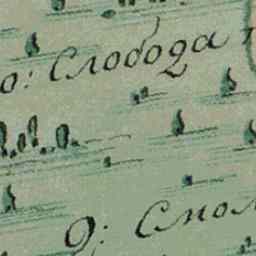 о: Слобода
9: Смол